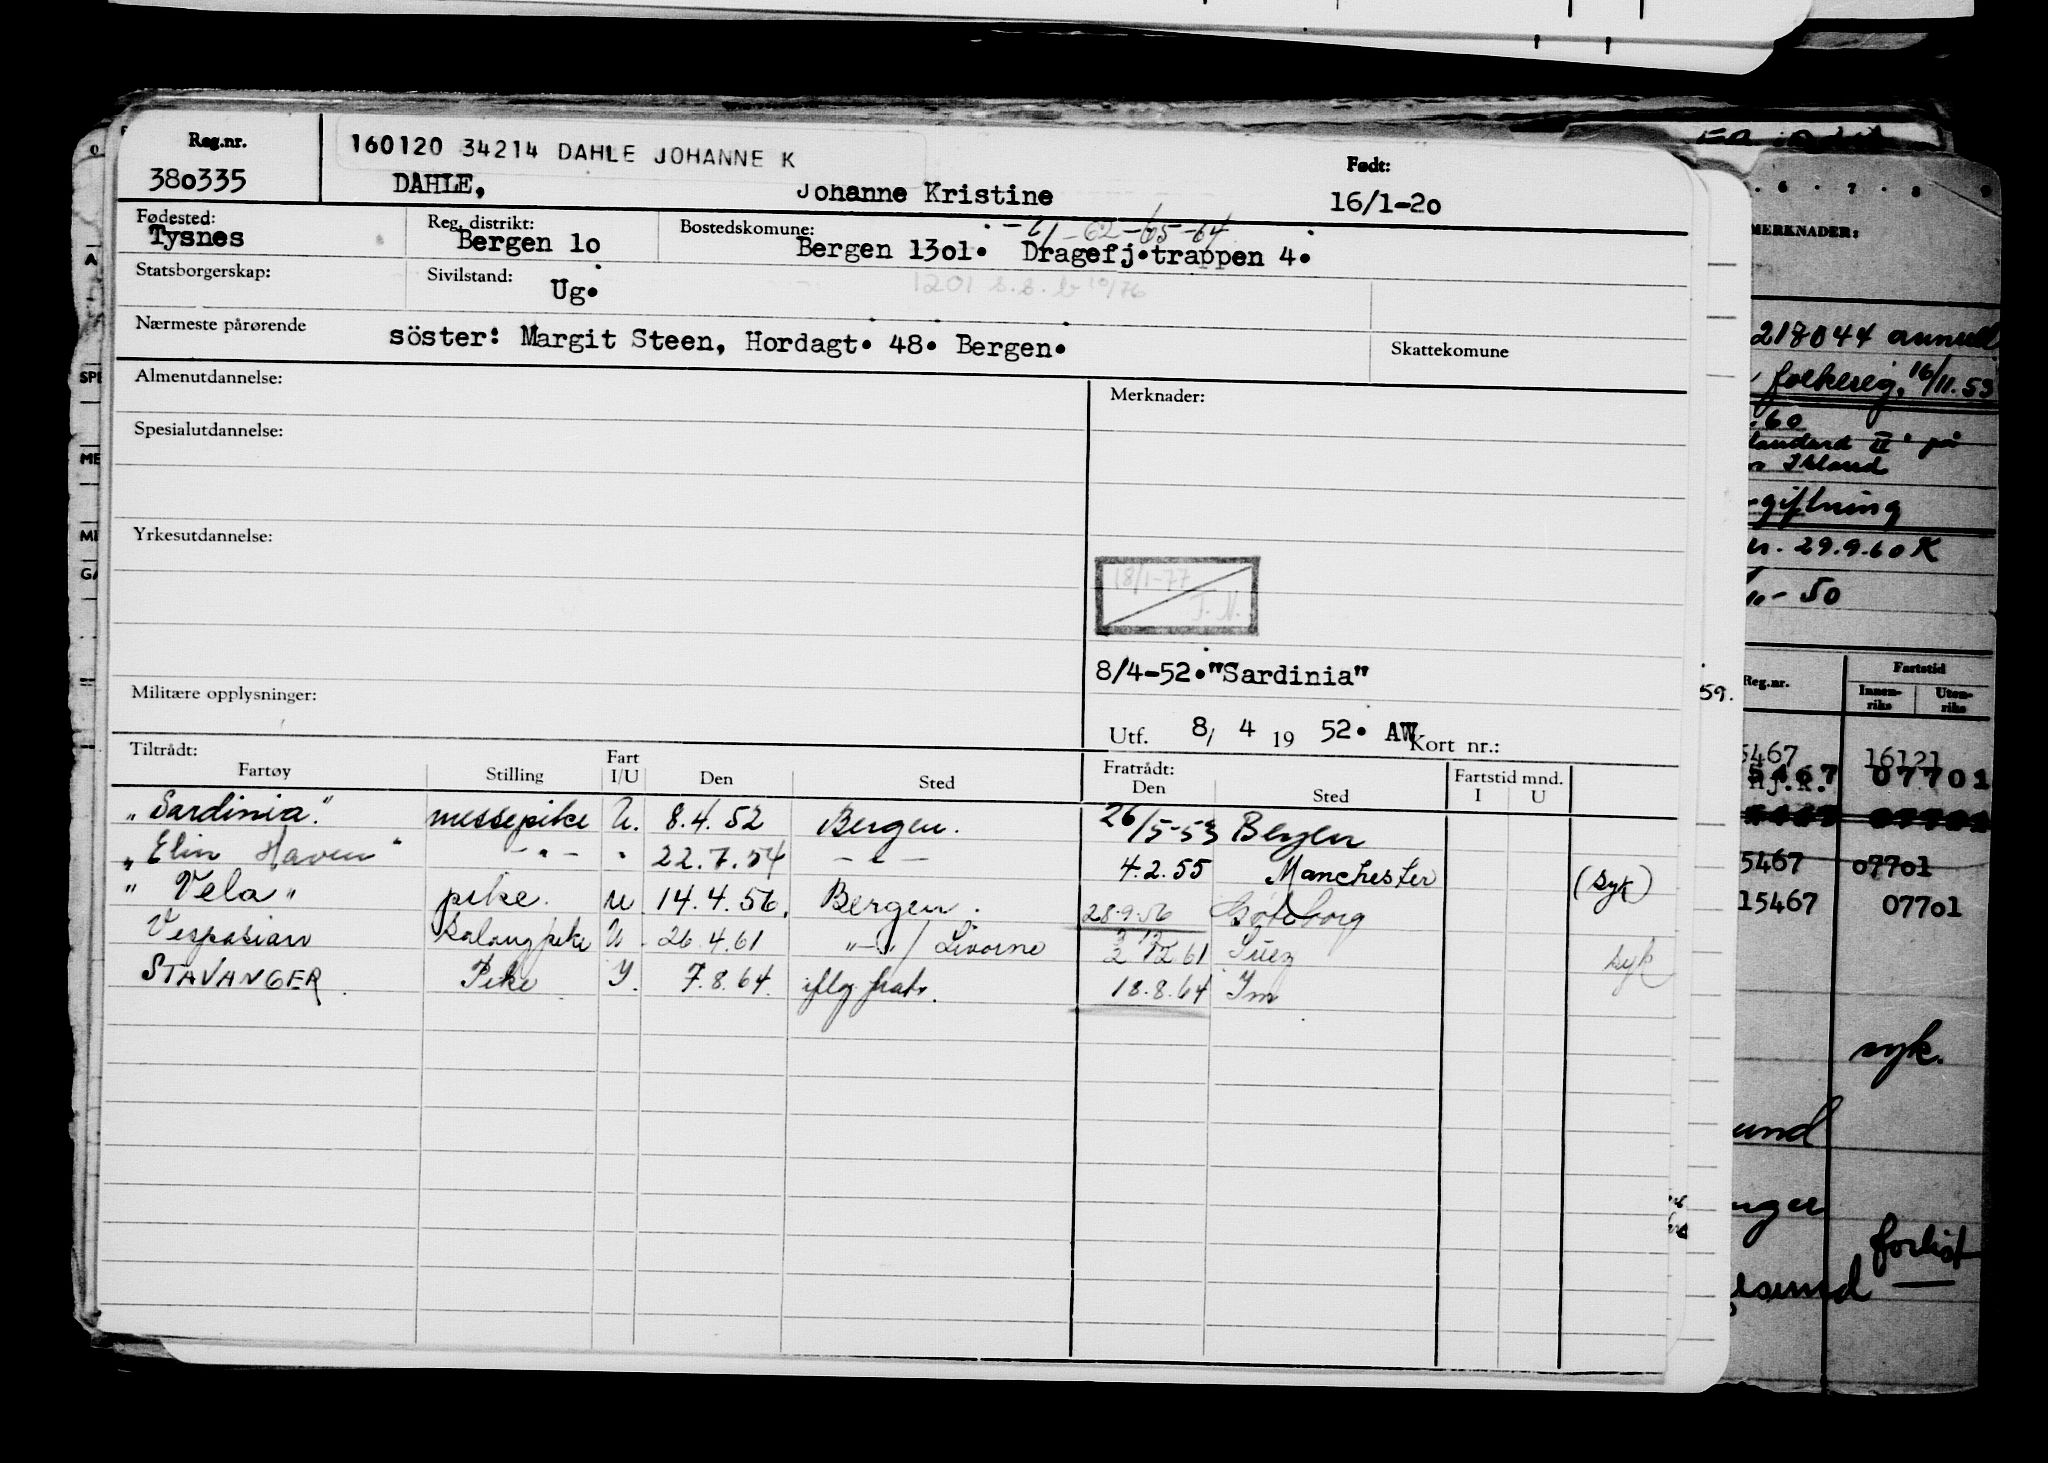 Reg.nr.
380335
160120 34214 DAHLE JOHANNE K
DAHLE, Johanne Kristine
Født:
16/1-20
Fødested:
Tysnes
Reg. distrikt:
Bergen 10
Bostedskomune: -61-62-65-64
Bergen 1301. Dragefj.trappen 4.
Statsborgerskap:
Sivilstand:
Ug.
1201 s.s. b 10/76
Nærmeste pårørende
söster: Margit Steen, Hordagt. 48. Bergen.
Skattekomune
Almenutdannelse:
Merknader:
Spesialutdannelse:
Yrkesutdannelse:
18/1-77
T. N.
8/4-52."Sardinia"
Militære opplysninger:
Utf. 8/ 4 19 52. AW Kort nr.:
Tiltrådt:
Fartøy Stilling Fart I/U Den Sted
Fratrådt:
Den Sted
Fartstid mnd.
I U
"Sardinia." messepike U. 8.4.52 Bergen. 26/5-53 Bergen
"Elin Haven" - " - " 22.7.54 - " - 4.2.55 Manchester (syk)
"Vela" pike. U 14.4.56. Bergen. 28.9.56 Gøteborg
Vespasian Salongpike U 26.4.61 "-"/ Livorno 2 12 61 Suez syk
STAVANGER. Pike Y. 7.8.64. iflg fratr. 18.8.64 Im
6 7 8 9
MERKNADER:
217044 annull
folkereg. 16/11.53
.60
Island
giftning
29.9.60 K
- 50
59.
Reg.nr.
Fartstid
Innen-riks
Uten-riks
5467 16121
5467 07701
5467 07701
15467 07701
syk.
und
nger
forlist